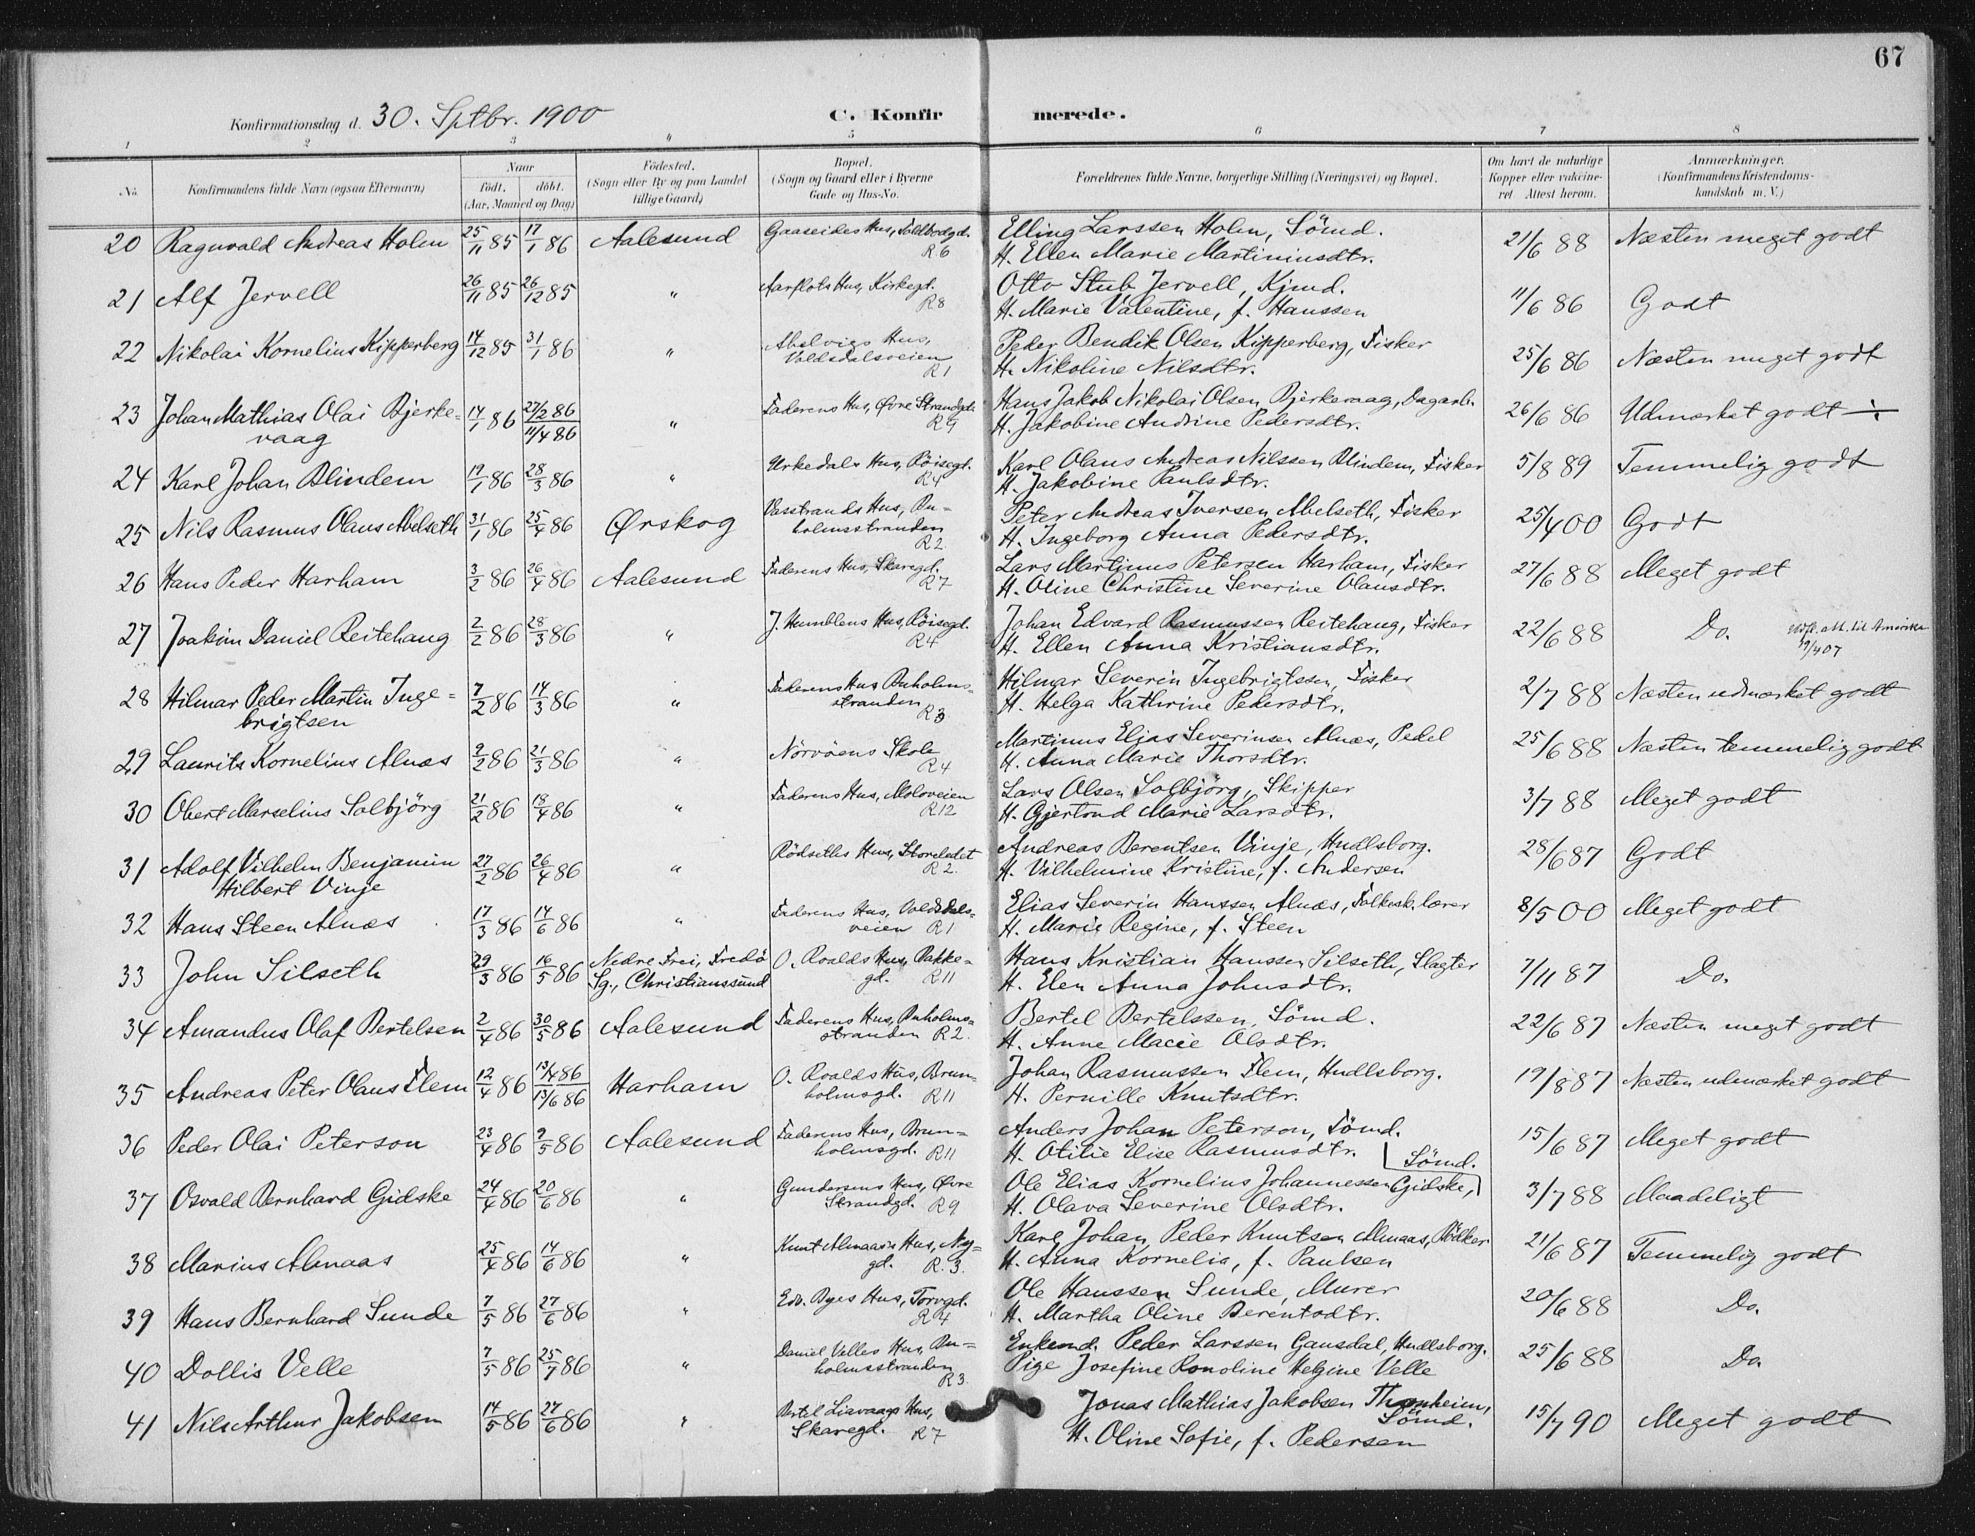 67
Konfirmationsdag d. 30. Sptbr. 1900 C. Konfirmerede.
1 2 3 4 5 6 7 8
No. Konfirmandens fulde Navn (ogsaa Efternavn) Naar født. døbt. (Aar, Maaned og Dag) Fødested. (Sogn eller By og paa Landet tillige Gaard) Bopæl. (Sogn og Gaard eller i Byerne Gade og Hus-No. Forældrenes fulde Navne, borgerlige Stilling (Næringsvei) og Bopæl. Om havt de naturlige Kopper eller vakcineret Attest herom. Anmærkninger. (Konfirmandens Kristendomskundskab m. V.)
20 Ragnvald Andreas Holm 25/11 85 17/1 86 Aalesund Gaaseides Hus, R6 Elling Larssen Holm, Sömd. 21/6 88 Næsten meget godt
H. Ellen Marie Martiniusdtr.
21 Alf Jervell 26/11 85 26/12 85 " Aarflots Hus, Kirkegt. R8 Otto Stub Jervell, Kjmd. 11/6 86 Godt
H. Marie Valentine, f. Hanssen
22 Nikolai Kornelius Kipperberg 14/12 85 31/1 86 " Abelvigs Hus, Voldsdalsveien R1 Peder Bendik Olsen Kipperberg, Fisker 25/6 86 Næsten meget godt
H. Nikoline Nilsdtr.
23 Johan Mathias Olai Bjerke= 14/1 86 27/2 86 11/4 86 " Faderens Hus, Øvre Strandgt. R9 Hans Jakob Nikolai Olsen Bjerkevaag, Dagarb. 26/6 86 Udmærket godt ÷
vaag H. Jakobine Andrine Pedersdtr.
24 Karl Johan Blindem 19/1 86 28/3 86 " Urkedals Hus, Röisegt. R4 Karl Olaus Andreas Nilssen Blindem, Fisker 5/8 89 Temmelig godt
H. Jakobine Paulsdtr.
25 Nils Rasmus Olaus Abelseth 31/1 86 25/4 86 Ørskog Vasstrands Hus, Bu= holmsstranden R2 Peter Andreas Iversen Abelseth, Fisker 25/4 00 Godt
H. Ingeborg Anna Pedersdtr.
26 Hans Peder Harham 3/2 86 26/4 86 Aalesund Faderens Hus, Skaregd. R7 Lars Martinus Petersen Harham, Fisker 27/6 88 Meget godt
H. Oline Christine Severine Olausdtr.
27 Joakim Daniel Reitehaug 2/2 86 28/3 86 " J. Humblens Hus, Röisegd. R4 Johan Edvard Rasmussen Reitehaug, Fisker 22/6 88 Do. Udfl. att. til Amerika 19/4 07
H. Ellen Anna Kristiansdtr.
28 Hilmar Peder Martin Inge= 7/2 86 14/3 86 " Faderens Hus Buholms= stranden R3 Hilmar Severin Ingebrigtssen, Fisker 2/7 88 Næsten udmærket godt
brigtsen H. Helga Kathrine Pedersdtr.
29 Laurits Kornelius Alnæs 9/2 86 21/3 86 " Nörvöens Skole R4 Martinus Elias Severinsen Alnæs, Pedel 25/6 88 Næsten temmelig godt
H. Anna Marie Thorsdtr.
30 Obert Marselius Solbjörg 21/2 86 18/4 86 " Faderens Hus, Moloveien R12 Lars Olsen Solbjörg, Skipper 3/7 88 Meget godt
H. Gjertrud Marie Larsdtr.
31 Adolf Vilhelm Benjamin 27/2 86 26/4 86 " Rödseths Hus, Storeledet R2. Andreas Berentsen Vinje, Hndlsborg. 28/6 87 Godt
Hilbert Vinje H. Vilhelmine Kristine, f. Andersen
32 Hans Steen Alnæs 17/3 86 14/6 86 " Faderens Hus, Voldsdals= veien R1 Elias Severin Hanssen Alnæs, Folkesk.lærer 8/5 00 Meget godt
H. Marie Regine, f. Steen
33 John Silseth 29/3 86 16/5 86 Nedre Frei, Fredö Sg., Christianssund O. Roalds Hus, Bakke= gd. R11 Hans Kristian Hanssen Silseth, Slagter 7/11 87 Do.
H. Elen Anna Johnsdtr.
34 Amandus Olaf Bertelsen 2/4 86 30/5 86 Aalesund Faderens Hus, Buholms= stranden R2. Bertel Bertelssen, Sömd. 22/6 87 Næsten meget godt
H. Anne Marie Olsdtr.
35 Andreas Peter Olaus Flem 12/4 86 13/4 86 13/6 86 Harham O. Roalds Hus, Brun= holmsgd. R11 Johan Rasmussen Flem, Hndlsborg. 19/8 87 Næsten udmærket godt
H. Pernille Knutsdtr.
36 Peder Olai Peterson 23/4 86 9/5 86 Aalesund Faderens Hus, Brun= holmsgd. R11 Anders Johan Peterson, Sömd. 15/6 87 Meget godt
H. Otilie Elise Rasmusdtr.
37 Osvald Bernhard Gidske 24/4 86 20/6 86 " Gundersens Hus, Övre Strandgd. R9 Ole Elias Kornelius Johannessen Gidske, Sömd. 3/7 88 Maadeligt
H. Olava Severine Olsdtr.
38 Marius Almaas 25/4 86 14/6 86 " Knut Almaas's Hus, Ny= gd. R.3. Karl Johan Peder Knutsen Almaas, Bödker 21/6 87 Temmelig godt
H. Anna Kornelia, f. Paulsen
39 Hans Bernhard Sunde 7/5 86 27/6 86 " Edv. Byes Hus, Torvgd. R4 Ole Hanssen Sunde, Murer 20/6 88 Do.
H. Martha Oline Berentsdtr.
40 Dollis Velle 7/5 86 25/7 86 " Daniel Velles Hus, Bu= holmsstranden R3. Enkemd. Peder Larssen Gausdal, Hndlsborg. 25/6 88 Do
Pige Josefine Ronoline Helgine Velle
41 Nils Arthur Jakobsen 14/5 86 27/6 86 " Bertel Liavaags Hus, Skaregd. R7 Jonas Mathias Jakobsen Thonheim, Sömd. 15/7 90 Meget godt
H. Oline Sofie, f. Pedersen